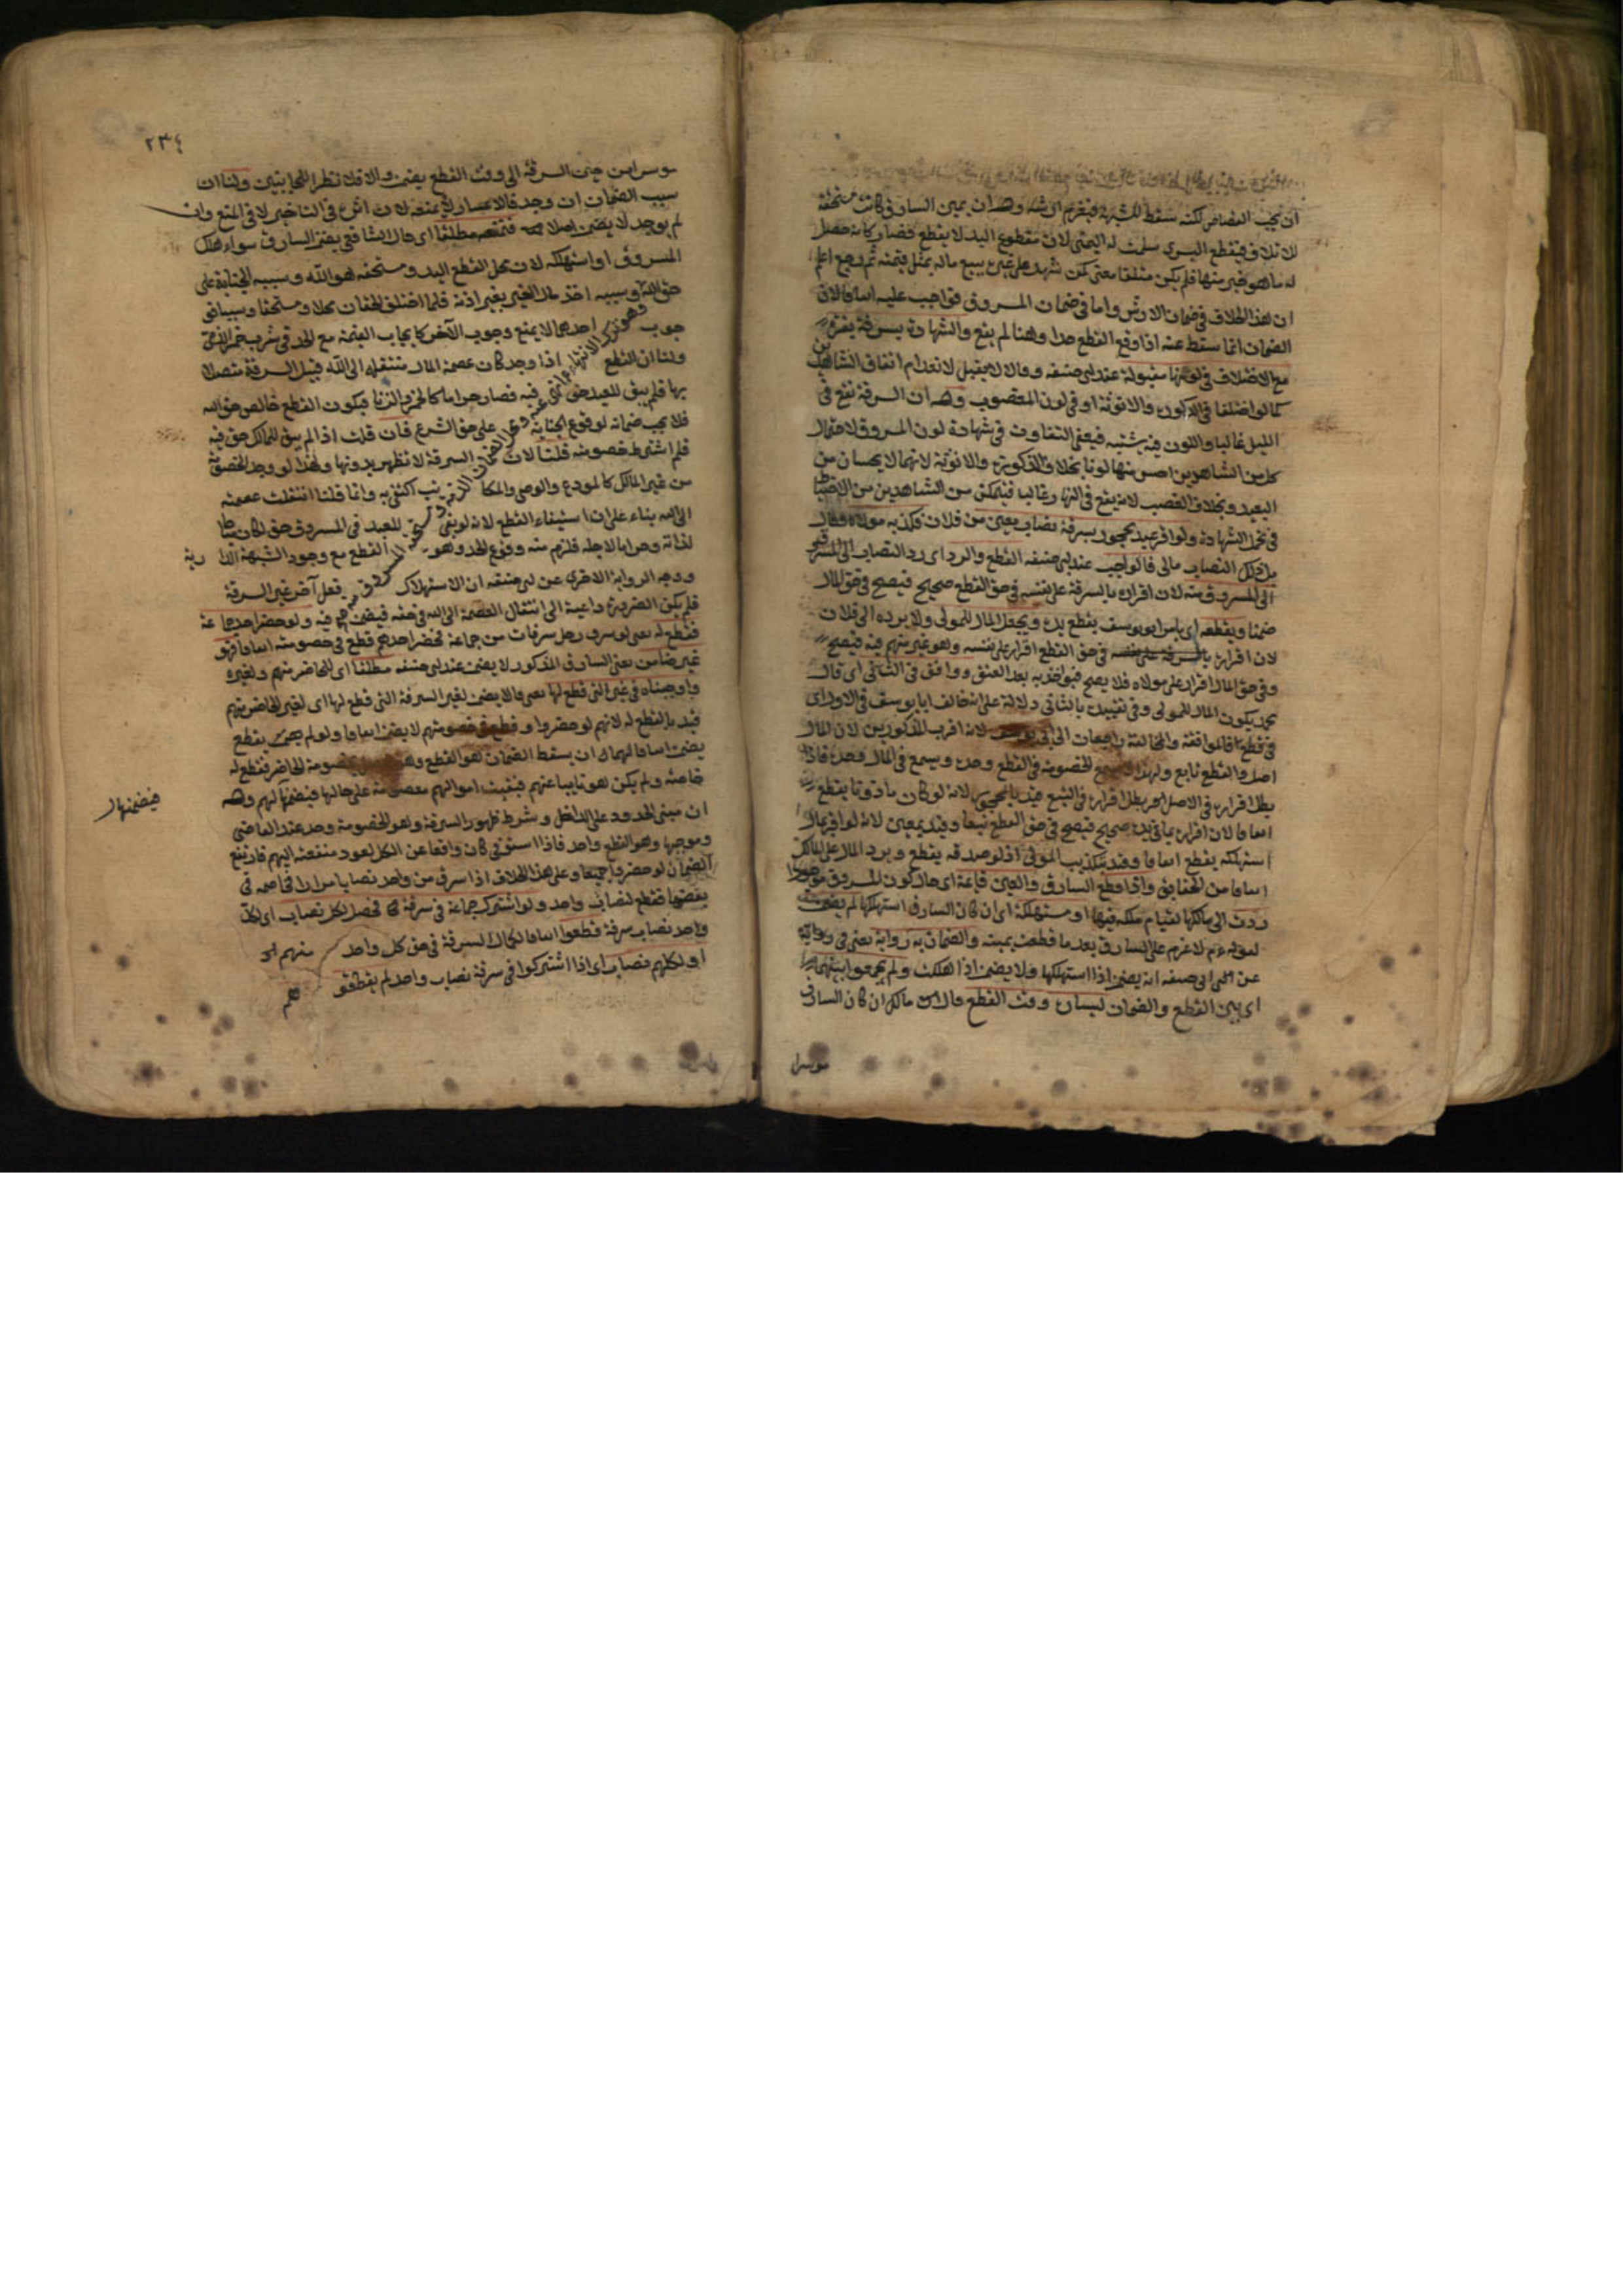 ان يجب القصاص لكنه سقط للشبهة فيغرم ارشه وله ان يمين السارق كانت مستحقة
للاتلاف فبقطع اليسرى سلمت له اليمنى لان مقطوع اليد لا يقطع فصار كانه حصل
له ما هو خير منها فلم يكن متلفا معنى كمن شهد على غيره ببيع ماله بمثل قيمته ثم رجع اعلم
ان هذا الخلاف في ضمان الارش واما في ضمان المسروق فواجب عليه اتفاقا لان
الضمان انما سقط عنه اذا وقع القطع حدا وههنا لم يقع والشهادة بسرقة بقرة
مع الاختلاف في لونها مقبولة عند ابى حنيفه وقالا لا يقبل لانعدام اتفاق الشاهدين
كما لو اختلفا في الذكورة والانوثة او في لون المغصوب وله ان السرقة تقع في
الليل غالبا واللون فيه يشتبه فيعفى التفاوت في شهادة لون المسروق لاحتمال
كل من الشاهدين احس منها لونا بخلاف الذكورة والانوثة لانهما لا يحسان من
البعيد وبخلاف الغصب لانه يقع في النهار غالبا فيتمكن من الشاهدين من الاحتياط
في تحمل الشهادة ولو اقر عبد محجور بسرقة نصاب بعينه من فلان فكذبه مولاه وقال
بل ذلك النصاب مالى فالواجب عند ابى حنيفه القطع والرد اى رد النصاب الى المسروق
الى المسروق منه لان اقراره بالسرقة على نفسه في حق القطع صحيح فيصح في حق المال
ضمنا ويقطعه اى يامر ابو يوسف بقطع يده ويجعل المال للمولى ولا يرده الى فلان
لان اقراره بالسرقة على نفسه في حق القطع اقرار على نفسه وهو غير متهم فيه فيصح
وفي حق المال اقرار على مولاه فلا يصح فيؤاخذ به بعد العتق ووافق في الثاني اى قال
محمد يكون المال للمولى وفي تقييده بالثاني دلالة على انه خالف ابا يوسف في الاول اى
في قطع يده فالموافقة والمخالفة راجعات الى ابى يوسف لانه اقرب المذكورين لان المال
اصل والقطع تابع ولهذا لا يسمع الخصومة في القطع وحده ويسمع في المال وحده فاذا
بطل اقراره في الاصل بطل اقراره في التبع قيد بالمحجور لانه لو كان مأذونا يقطع
اتفاقا لان اقراره بما في يده صحيح فيصح في حق القطع تبعا وقيد بعينه لانه لو اقر بمال
استهلكه يقطع اتفاقا وقيد بتكذيب المولى اذ لو صدقه يقطع ويرد المال على المالك
اتفاقا من الحقايق واذا قطع السارق والعين قائمة اى حال كون المسروق موجودا
ردت الى مالكها لقيام ملكه فيها او مستهلكة اى ان كان السارق استهلكها لم يضمن
لقوله ءم لا غرم على السارق بعد ما قطعت يمينه والضمان به رواية يعنى في رواية
عن ابى حنيفه انه يضمن اذا استهلكها ولا يضمن اذا هلكت ولم يجمعوا بينهما
اى بين القطع والضمان ليساره وقت القطع قال مالك ان كان السارق
موسرا
٢٣٤
موسرا من حين السرقة الى وقت القطع يضمن والا فلا نظرا للجانبين ولنا ان
سبب الضمان ان وجد فالاعسار لا يمنعه لان اثره في التأخير لا في المنع وان
لم يوجد لا يضمن اصلا فنضمه مطلقا اى قال الشافعي يضمن السارق سواء هلك
المسروق او استهلكه لان محل القطع اليد ومستحقه هو الله وسببه الجناية على
حق الله وسببه اخذ مال الغير بغير اذنه فلما اختلف الحقان محلا ومستحقا وسببا فو
جوب احدهما لا يمنع وجوب الآخر كايجاب القيمة مع الحد في شرب خمر الذمى
ولنا ان القطع اذا وجد كان عصمة المال منتقلة الى الله قبيل السرقة متصلا
بها فلم يبق للعبد حق فيه فصار حراما كالخمر والزنا فيكون القطع خالص حق الله
فلا يجب ضمانه لوقوع الجناية على حق الشرع فان قلت اذا لم يبق للمالك حق فيه
فلم اشترط خصومته قلنا لان السرقة لا تظهر بدونها ولهذا لو وجد الخصومة
من غير المالك كالمودع والوصى والمكاتب اكتفى به وانما قلنا انتقلت عصمته
الى الله بناء على ان استيفاء القطع لانه لو بقى للعبد في المسروق حق لكان مباحا
لذاته وحراما لاجله فلزم منه وقوع الحد وهو القطع مع وجود الشبهة الدارية
ووجه الرواية الاخرى عن ابى حنيفه ان الاستهلاك فعل آخر غير السرقة
فلم يكن الضرورة داعية الى انتقال العصمة الى الله في حقه فيضمن فيه ولو حضر احدهما
فقطع له يعنى لو سرق رجل سرقات من جماعة فحضر احدهم قطع في خصومته اتفاقا فهو
غير ضامن يعنى السارق المذكور لا يضمن عند ابى حنيفه مطلقا اى للحاضر منهم ولغيره
واوجبناه في غير التى قطع لها يعنى قالا يضمن لغير السرقة التى قطع لها اى لغير الحاضر منهم
قيد بالقطع له لانهم لو حضروا وقطع في خصومتهم لا يضمن اتفاقا ولو لم يقطع
يضمن اتفاقا لهما ان يسقط الضمان هو القطع وهو خصومة الحاضر فقطع له
خاصة ولم يكن هو نايبا عنهم فبقيت اموالهم معصومة على حالها فيضمنها لهم وله
ان مبنى الحدود على التداخل وشرط ظهور السرقة وهو الخصومة وحد عند القاضي
وموجبها وهو القطع واحد فاذا استوفى كان واقعا عن الكل لعود منفعته اليهم فارتفع
الضمان لو حضروا جميعا وعلى هذا الخلاف اذا سرق من واحد نصابا مرارا فخاصمه في
بعضها فقطع لنصاب واحد ولو اشترك جماعة في سرقة فحصل لكل نصاب اى لكل
واحد نصاب سرقة قطعوا اتفاقا لكمال السرقة في حق كل واحد منهم
او لكلهم نصاب اى اذا اشتركوا في سرقة نصاب واحد لم يقطعو
هم
فيضمنها